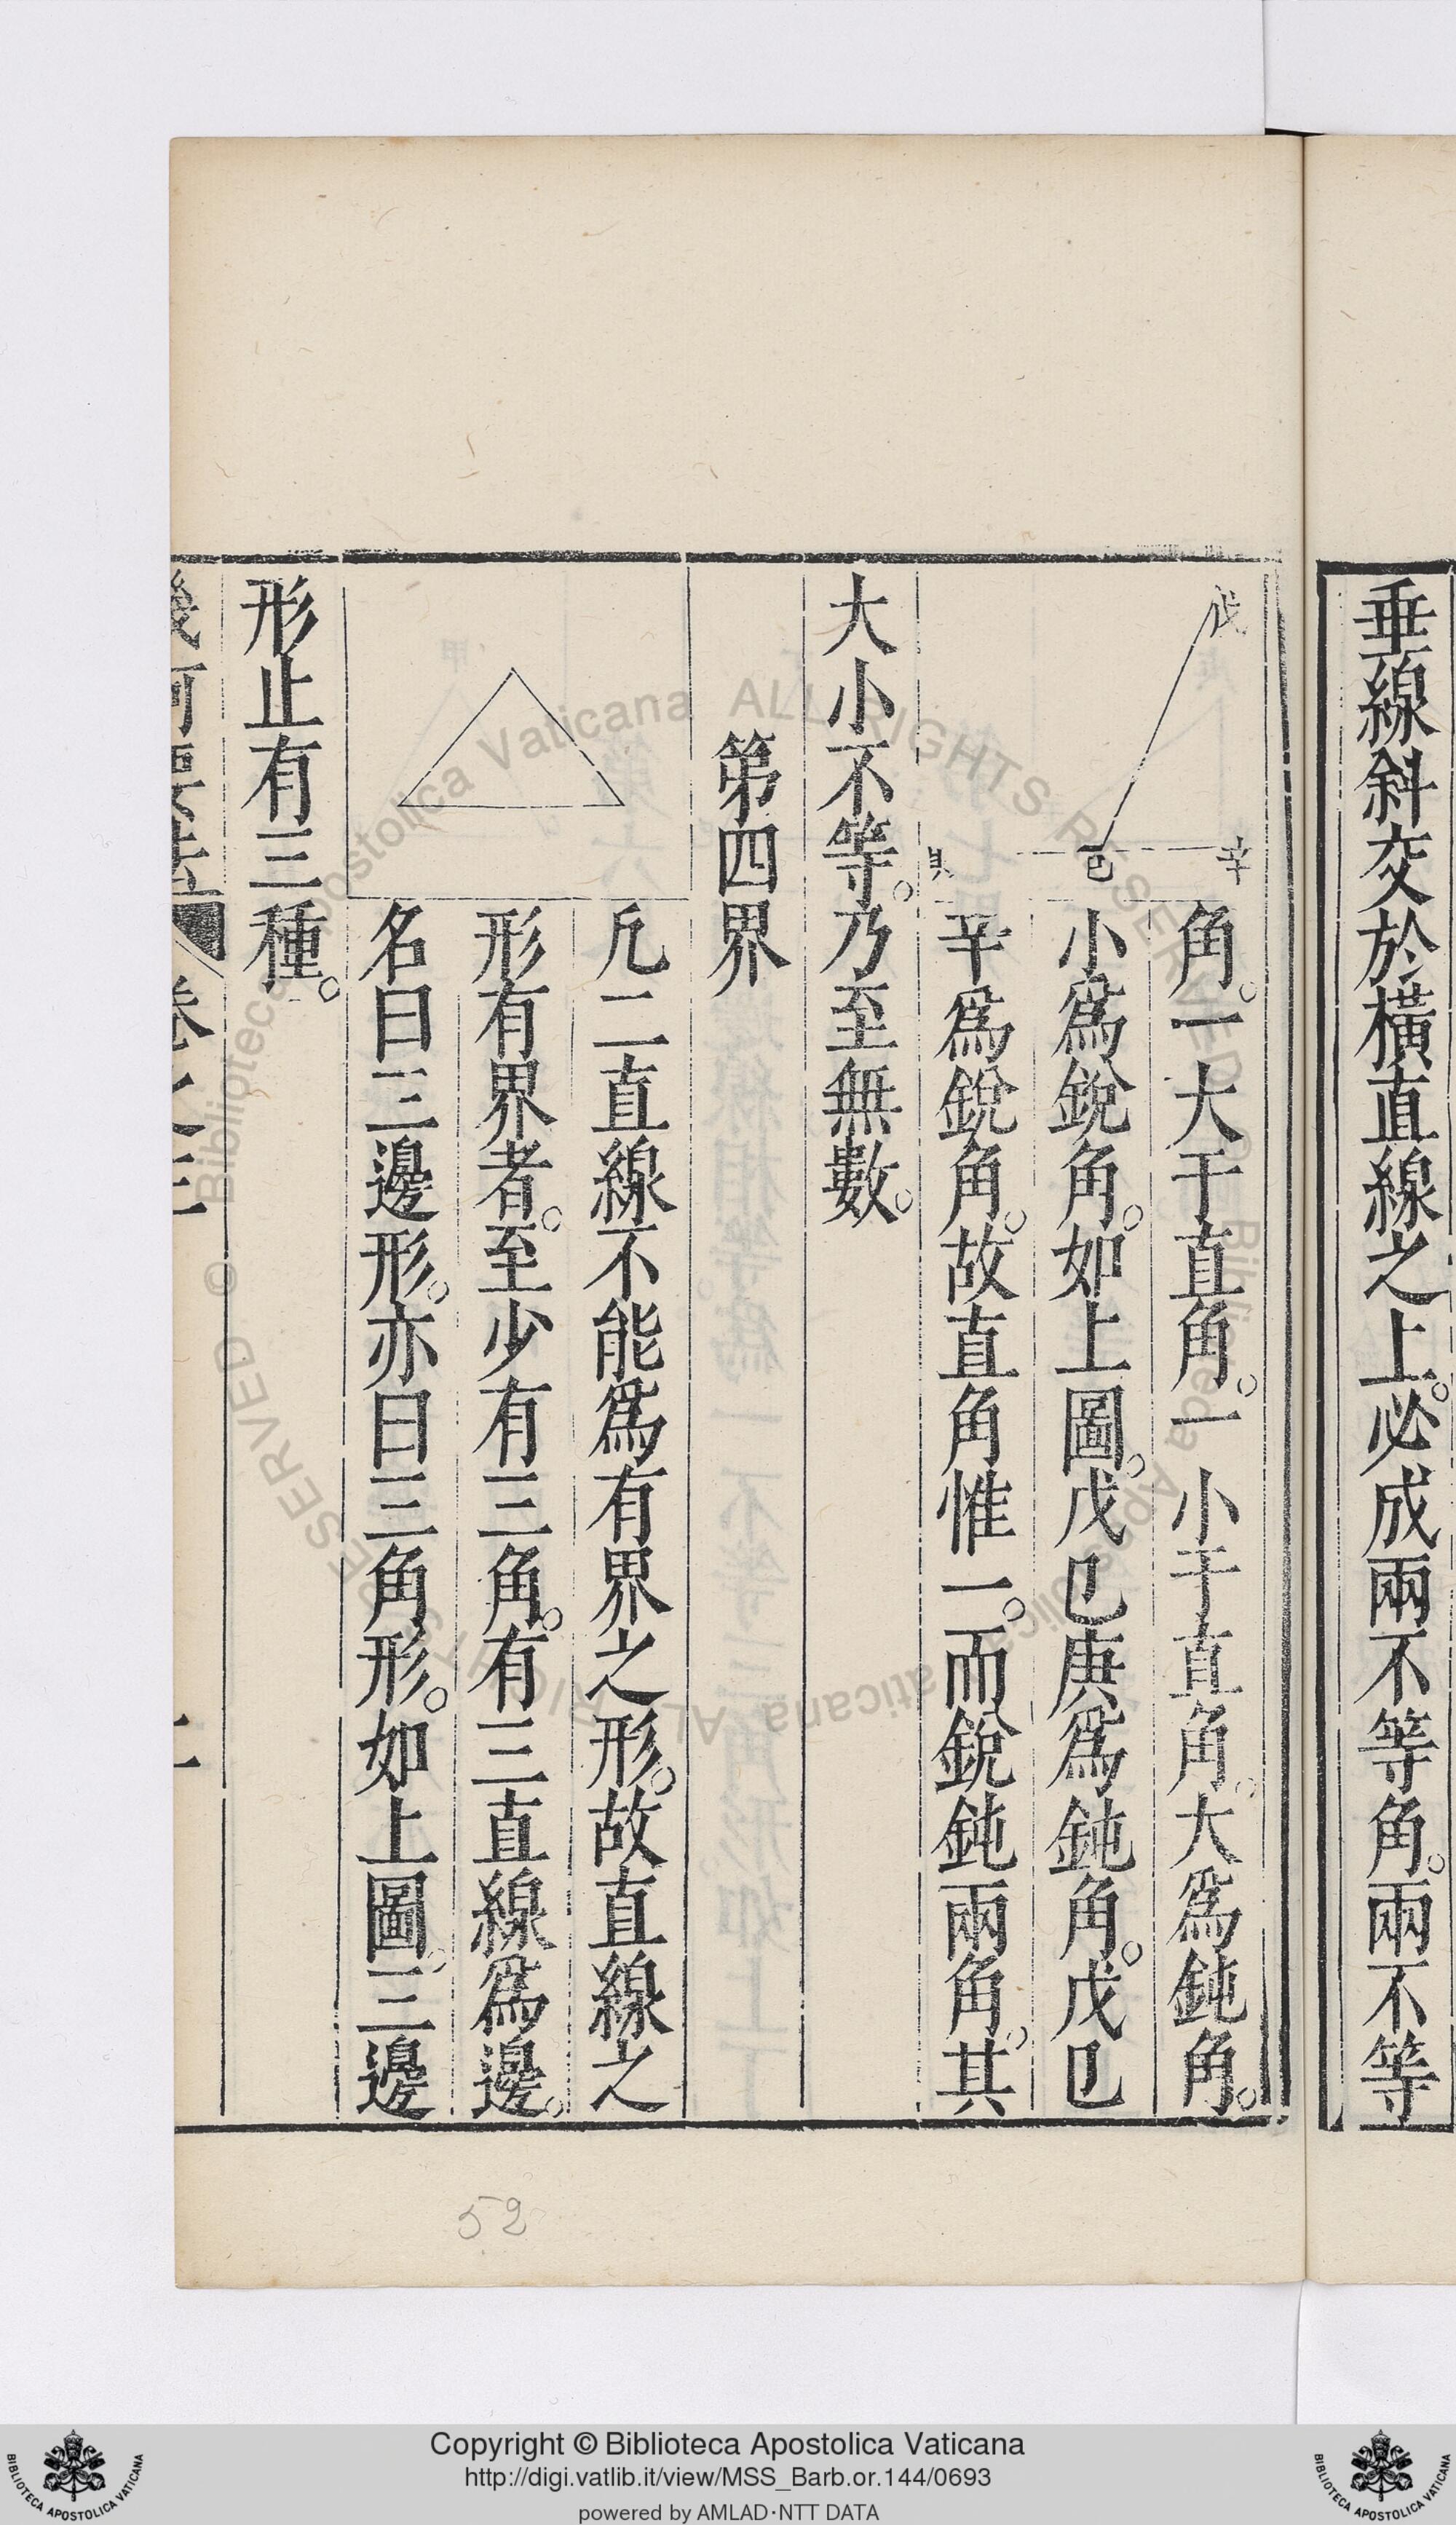 垂線斜交於橫直線之上。必成兩不等角。兩不等
戊
辛
己
角。一大于直角。一小于直角。大爲鈍角。
小爲銳角。如上圖。戊已庚爲鈍角。戊已
辛爲銳角。故直角惟一。而銳鈍兩角。其
大小不等。乃至無數。
第四界
凡二直線不能爲有界之形。故直線之
形有界者。至少有三角。有三直線爲邊。
名曰三邊形。亦曰三角形。如上圖。三邊
形止有三種。
幾何要法 卷之三 二
52
© Biblioteca Apostolica Vaticana ALL RIGHTS RESERVED
Copyright © Biblioteca Apostolica Vaticana
http://digi.vatlib.it/view/MSS_Barb.or.144/0693
powered by AMLAD·NTT DATA
BIBLIOTECA APOSTOLICA VATICANA
BIBLIOTECA APOSTOLICA VATICANA